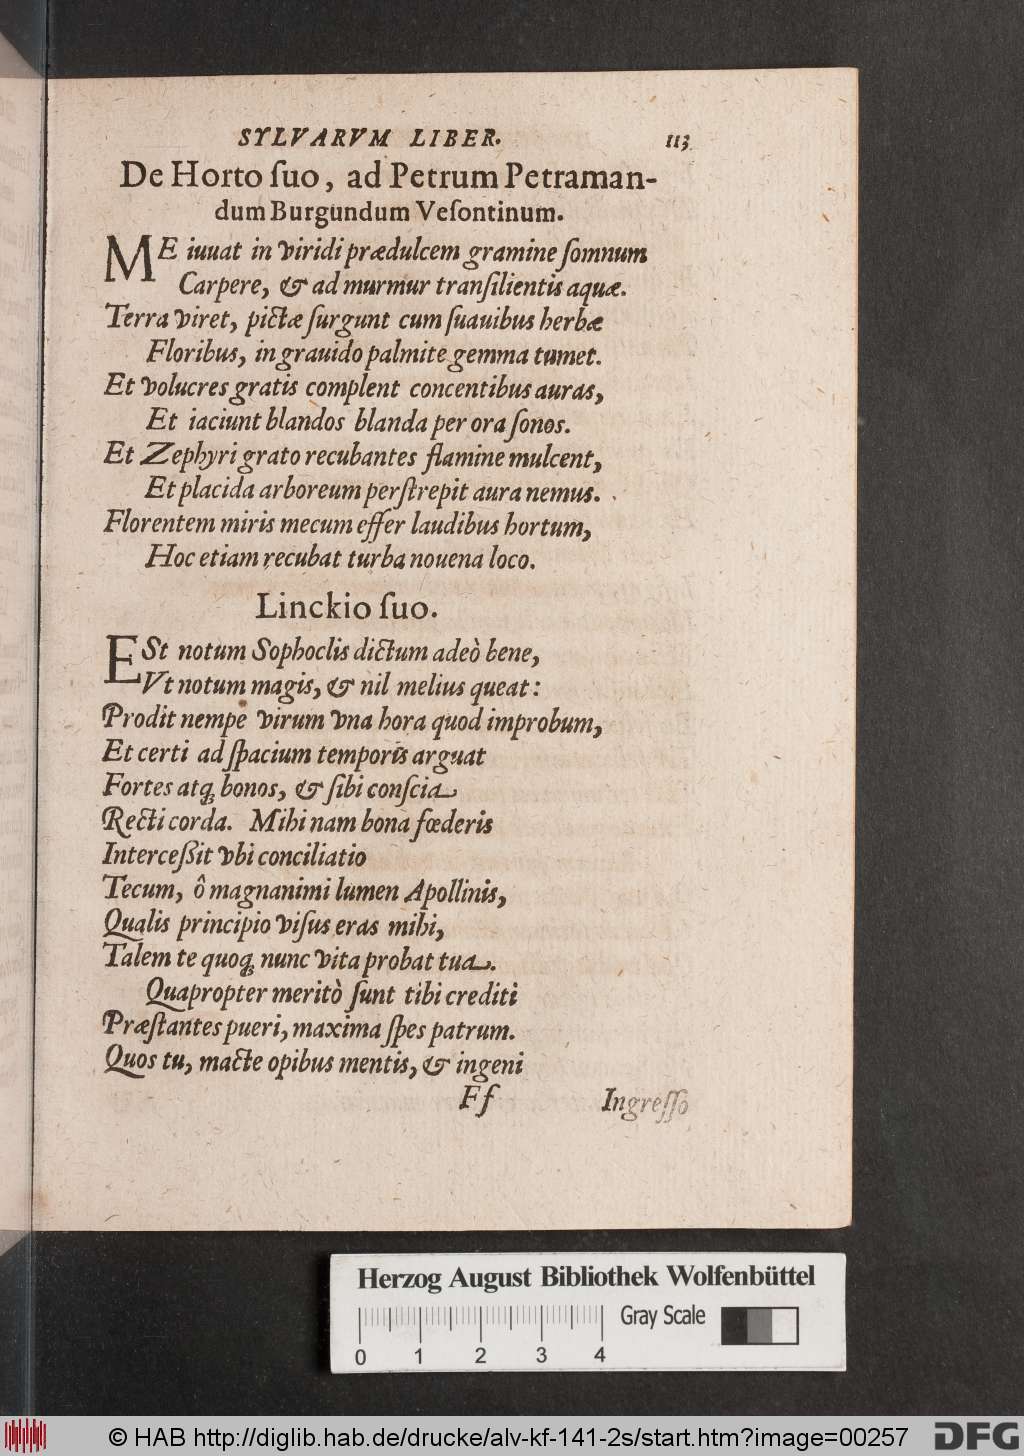 SYLVARVM LIBER. 113
De Horto ſuo, ad Petrum Petraman-
dum Burgundum Veſontinum.
ME iuuat in viridi prædulcem gramine ſomnum
Carpere, & ad murmur tranſilientis aquæ.
Terra viret, pictæ ſurgunt cum ſuauibus herbæ
Floribus, in grauido palmite gemma tumet.
Et volucres gratis complent concentibus auras,
Et iaciunt blandos blanda per ora ſonos.
Et Zephyri grato recubantes flamine mulcent,
Et placida arboreum perſtrepit aura nemus.
Florentem miris mecum effer laudibus hortum,
Hoc etiam recubat turba nouena loco.
Linckio ſuo.
ESt notum Sophoclis dictum adeò bene,
Vt notum magis, & nil melius queat:
Prodit nempe virum vna hora quod improbum,
Et certi ad ſpacium temporis arguat
Fortes atq; bonos, & ſibi conſcia
Recti corda. Mihi nam bona fœderis
Interceßit vbi conciliatio
Tecum, ô magnanimi lumen Apollinis,
Qualis principio viſus eras mihi,
Talem te quoq; nunc vita probat tua.
Quapropter meritò ſunt tibi crediti
Præſtantes pueri, maxima ſpes patrum.
Quos tu, macte opibus mentis, & ingeni
Ff Ingreſſo
Herzog August Bibliothek Wolfenbüttel
Gray Scale
0 1 2 3 4
© HAB http://diglib.hab.de/drucke/alv-kf-141-2s/start.htm?image=00257
DFG